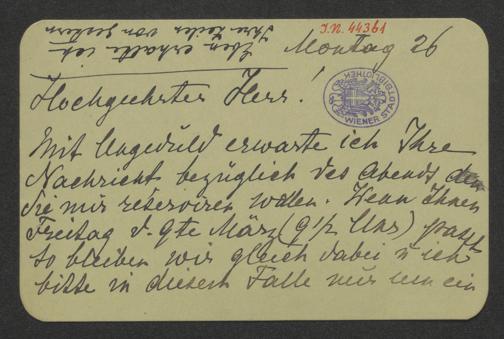 J.N. 44361
Eben erhalte ich
Ihre Zeilen von gestern
Montag 26
Hochgeehrter Herr!
WIENER STADTBIBLIOTHEK
Mit Ungeduld erwarte ich Ihre
Nachricht bezüglich des Abends den
Sie mir reserviren wollen. Wenn Ihnen
Freitag d. 9te März (9 1/2 Uhr) passt
so bleiben wir gleich dabei u ich
bitte in diesem Falle nur um ein